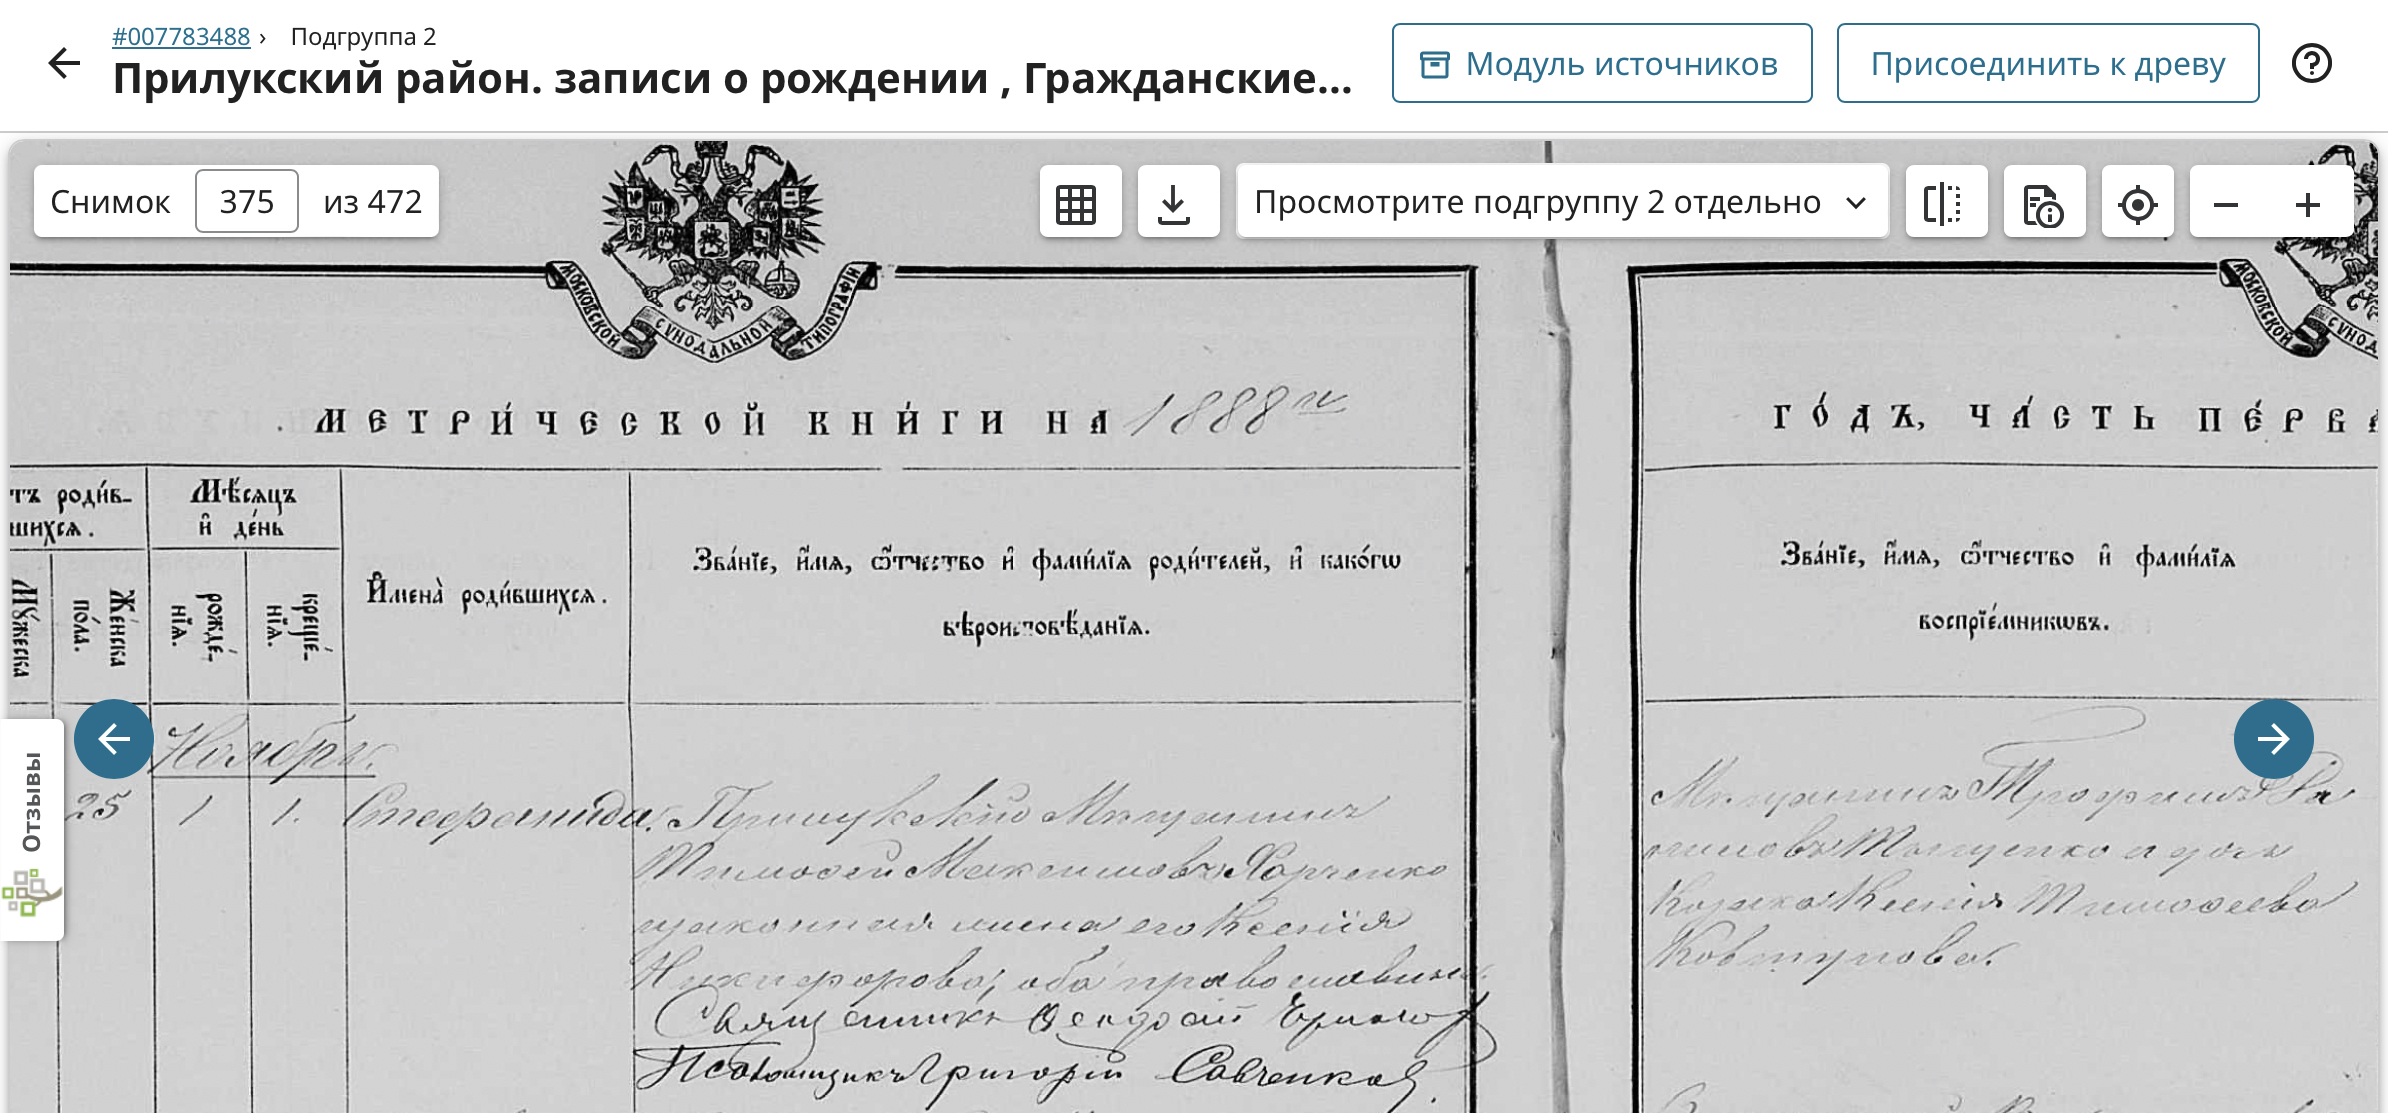 #007783488 › Подгруппа 2
Прилукский район. записи о рождении , Гражданские...
Модуль источников
Присоединить к древу
Снимок 375 из 472
Просмотрите подгруппу 2 отдельно
МОСКОВСКОЙ СѴНОДАЛЬНОЙ ТИПОГРАФІИ
МОСКОВСКОЙ СѴНОД
МЕТРИ́ЧЕСКОЙ КНИ́ГИ НА 1888
ГО́ДЪ, ЧА́СТЬ ПЕ́РВА
тъ роди́в-
шихсѧ.
Мѣ́сѧцъ
и҆ де́нь
Мꙋ́жеска
Же́нска
по́ла.
рожде́-
нїѧ.
креще́-
нїѧ.
И҆мена̀ роди́вшихсѧ.
Зва́нїе, и҆́мѧ, ѻ҆́тчество и҆ фами́лїѧ роди́телей, и҆ како́гѡ
вѣроисповѣ́данїѧ.
Зва́нїе, и҆́мѧ, ѻ҆́тчество и҆ фами́лїѧ
воспрїе́мникѡвъ.
Ноябрь.
25 1 1. Стефанида. Прилукскій Мѣщанинъ
Тимофей Максимовъ Харченко
и законная жена его Ксенія
Никифорова, оба православные.
Священникъ Ѳеодосій
Псаломщикъ Григорій Савченко
Мѣщанинъ Трофимъ
и дочь
Козака Ксенія Тимофеева
Ковтунова.
Отзывы